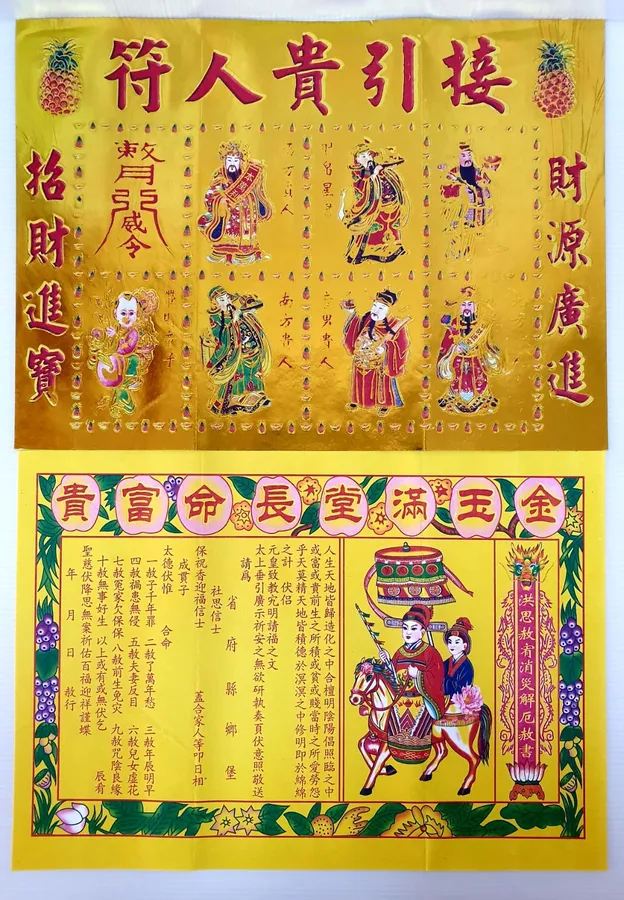 接引貴人符
財源廣進
招財進寶
敕令
南方貴人
金玉滿堂長命富貴
洪恩赦宥消災解厄赦書
人生天地皆歸造化之中合檀明陰陽倡照臨之中
或富或貴前生之所積或貧或賤當時之所愛勞怨
乎天莫精天地皆積德於溟溟之中修明即於綿綿
之計 伏侶
元皇致教究明請福之文
太上垂引廣示祈安之無欲研執奏頁伏意照敬送
請為
省府縣鄉堡
社恩信士
保祝香迎福信士 蓋合家人等叩日相
成貫子
太德伏惟 合命
一赦子千年罪 二赦了萬年愁 三赦年辰明早
四赦禍患無侵 五赦夫妻反目 六赦兒女虛花
七赦冤家欠保保 八赦前生免災 九赦咒陰良緣
十赦無事好生 以上或有或無伏乞 辰宥
聖慈伏降恩無案祈佑百福迎祥謹牒
年 月 日 赦行